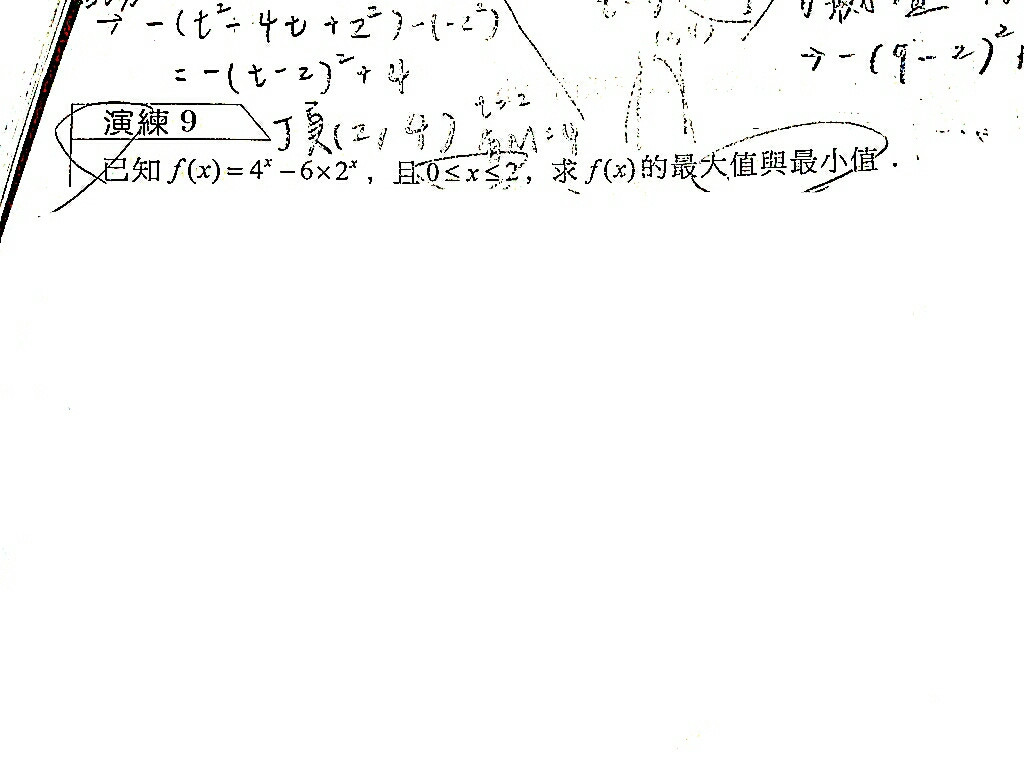 → -(t²-4t+2²)-(-2²)
→ -(9-2)²+
= -(t-2)²+4
演練 9 頂(2,4) t=2 M=4
已知 f(x)=4ˣ-6×2ˣ，且 0≤x≤2，求 f(x)的最大值與最小值．